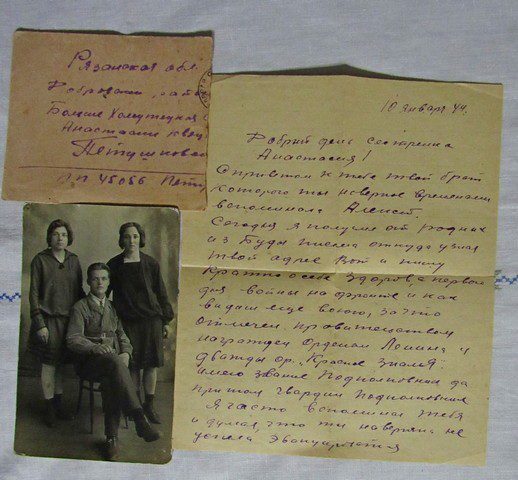 Рязанская обл.
Больше
Анастасии
Петушковой
п.п 45056
10 января 44.
Добрый день сестренка
Анастасия!
С приветом к тебе твой брат
которого ты наверное временами
вспоминала Алексей.
Сегодня я получил от родных
из письма откуда узнал
твой адрес Вот и пишу
Кратко о себе Здоров, с первого
дня войны на фронте и как
видиш еще воюю, за что
отмечен правительством
награжден Орденом Ленина и
дважды ор. "Красное Знамя".
имею звание Подполковник да
притом гвардии Подполковник
Я часто вспоминал тебя
и думал, что ты наверно не
успела эвакуироваться